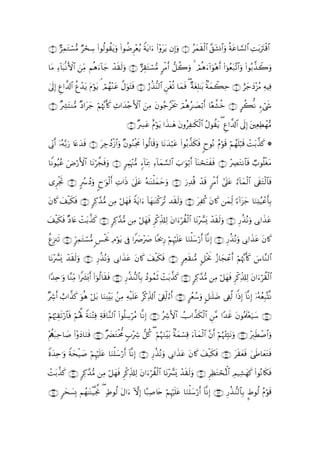 ٱقْتَرَبَتِ ٱلسَّاعَةُ وَٱنشَقَّ ٱلْقَمَرُ ۝ وَإِن يَرَوْا۟ ءَايَةً يُعْرِضُوا۟ وَيَقُولُوا۟ سِحْرٌ مُّسْتَمِرٌّ ۝
وَكَذَّبُوا۟ وَٱتَّبَعُوٓا۟ أَهْوَآءَهُمْ ۚ وَكُلُّ أَمْرٍ مُّسْتَقِرٌّ ۝ وَلَقَدْ جَآءَهُم مِّنَ ٱلْأَنۢبَآءِ مَا
فِيهِ مُزْدَجَرٌ ۝ حِكْمَةٌۢ بَٰلِغَةٌ ۖ فَمَا تُغْنِ ٱلنُّذُرُ ۝ فَتَوَلَّ عَنْهُمْ ۘ يَوْمَ يَدْعُ ٱلدَّاعِ إِلَىٰ
شَىْءٍ نُّكُرٍ ۝ خُشَّعًا أَبْصَٰرُهُمْ يَخْرُجُونَ مِنَ ٱلْأَجْدَاثِ كَأَنَّهُمْ جَرَادٌ مُّنتَشِرٌ ۝
مُّهْطِعِينَ إِلَى ٱلدَّاعِ ۖ يَقُولُ ٱلْكَٰفِرُونَ هَٰذَا يَوْمٌ عَسِرٌ ۝
۞ كَذَّبَتْ قَبْلَهُمْ قَوْمُ نُوحٍ فَكَذَّبُوا۟ عَبْدَنَا وَقَالُوا۟ مَجْنُونٌ وَٱزْدُجِرَ ۝ فَدَعَا رَبَّهُۥٓ أَنِّى
مَغْلُوبٌ فَٱنتَصِرْ ۝ فَفَتَحْنَآ أَبْوَٰبَ ٱلسَّمَآءِ بِمَآءٍ مُّنْهَمِرٍ ۝ وَفَجَّرْنَا ٱلْأَرْضَ عُيُونًا
فَٱلْتَقَى ٱلْمَآءُ عَلَىٰٓ أَمْرٍ قَدْ قُدِرَ ۝ وَحَمَلْنَٰهُ عَلَىٰ ذَاتِ أَلْوَٰحٍ وَدُسُرٍ ۝ تَجْرِى
بِأَعْيُنِنَا جَزَآءً لِّمَن كَانَ كُفِرَ ۝ وَلَقَد تَّرَكْنَٰهَآ ءَايَةً فَهَلْ مِن مُّدَّكِرٍ ۝ فَكَيْفَ كَانَ
عَذَابِى وَنُذُرِ ۝ وَلَقَدْ يَسَّرْنَا ٱلْقُرْءَانَ لِلذِّكْرِ فَهَلْ مِن مُّدَّكِرٍ ۝ كَذَّبَتْ عَادٌ فَكَيْفَ
كَانَ عَذَابِى وَنُذُرِ ۝ إِنَّآ أَرْسَلْنَا عَلَيْهِمْ رِيحًا صَرْصَرًا فِى يَوْمِ نَحْسٍ مُّسْتَمِرٍّ ۝ تَنزِعُ
ٱلنَّاسَ كَأَنَّهُمْ أَعْجَازُ نَخْلٍ مُّنقَعِرٍ ۝ فَكَيْفَ كَانَ عَذَابِى وَنُذُرِ ۝ وَلَقَدْ يَسَّرْنَا
ٱلْقُرْءَانَ لِلذِّكْرِ فَهَلْ مِن مُّدَّكِرٍ ۝ كَذَّبَتْ ثَمُودُ بِٱلنُّذُرِ ۝ فَقَالُوٓا۟ أَبَشَرًا مِّنَّا وَٰحِدًا
نَّتَّبِعُهُۥٓ إِنَّآ إِذًا لَّفِى ضَلَٰلٍ وَسُعُرٍ ۝ أَءُلْقِىَ ٱلذِّكْرُ عَلَيْهِ مِنۢ بَيْنِنَا بَلْ هُوَ كَذَّابٌ أَشِرٌ ۝
سَيَعْلَمُونَ غَدًا مَّنِ ٱلْكَذَّابُ ٱلْأَشِرُ ۝ إِنَّا مُرْسِلُوا۟ ٱلنَّاقَةِ فِتْنَةً لَّهُمْ فَٱرْتَقِبْهُمْ
وَٱصْطَبِرْ ۝ وَنَبِّئْهُمْ أَنَّ ٱلْمَآءَ قِسْمَةٌۢ بَيْنَهُمْ ۖ كُلُّ شِرْبٍ مُّحْتَضَرٌ ۝ فَنَادَوْا۟ صَاحِبَهُمْ
فَتَعَاطَىٰ فَعَقَرَ ۝ فَكَيْفَ كَانَ عَذَابِى وَنُذُرِ ۝ إِنَّآ أَرْسَلْنَا عَلَيْهِمْ صَيْحَةً وَٰحِدَةً
فَكَانُوا۟ كَهَشِيمِ ٱلْمُحْتَظِرِ ۝ وَلَقَدْ يَسَّرْنَا ٱلْقُرْءَانَ لِلذِّكْرِ فَهَلْ مِن مُّدَّكِرٍ ۝ كَذَّبَتْ
قَوْمُ لُوطٍۭ بِٱلنُّذُرِ ۝ إِنَّآ أَرْسَلْنَا عَلَيْهِمْ حَاصِبًا إِلَّآ ءَالَ لُوطٍ ۖ نَّجَّيْنَٰهُم بِسَحَرٍ ۝